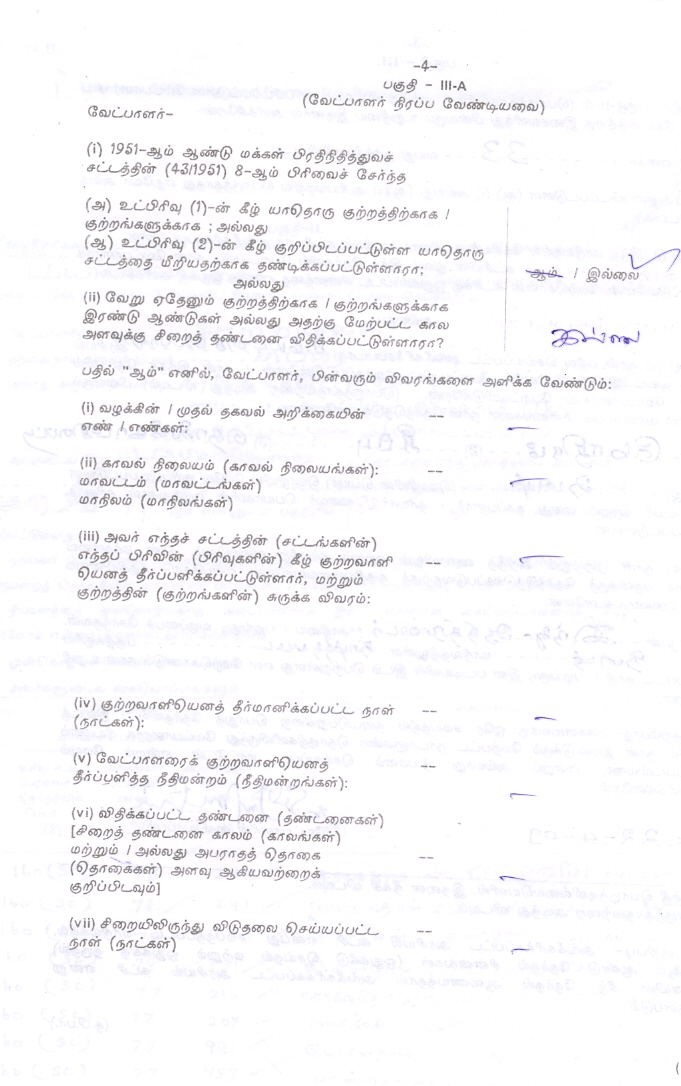 -4-
பகுதி - III-A
(வேட்பாளர் நிரப்ப வேண்டியவை)
வேட்பாளர்-
(i) 1951-ஆம் ஆண்டு மக்கள் பிரதிநிதித்துவச்
சட்டத்தின் (43/1951) 8-ஆம் பிரிவைச் சேர்ந்த
(அ) உட்பிரிவு (1)-ன் கீழ் யாதொரு குற்றத்திற்காக /
குற்றங்களுக்காக ; அல்லது
(ஆ) உட்பிரிவு (2)-ன் கீழ் குறிப்பிடப்பட்டுள்ள யாதொரு
சட்டத்தை மீறியதற்காக தண்டிக்கப்பட்டுள்ளாரா;
ஆம் / இல்லை
அல்லது
(ii) வேறு ஏதேனும் குற்றத்திற்காக / குற்றங்களுக்காக
இரண்டு ஆண்டுகள் அல்லது அதற்கு மேற்பட்ட கால
அளவுக்கு சிறைத் தண்டனை விதிக்கப்பட்டுள்ளாரா?
இல்லை
பதில் "ஆம்" எனில், வேட்பாளர், பின்வரும் விவரங்களை அளிக்க வேண்டும்:
(i) வழக்கின் / முதல் தகவல் அறிக்கையின் -- —
எண் / எண்கள்:
(ii) காவல் நிலையம் (காவல் நிலையங்கள்): --
மாவட்டம் (மாவட்டங்கள்) —
மாநிலம் (மாநிலங்கள்)
(iii) அவர் எந்தச் சட்டத்தின் (சட்டங்களின்)
எந்தப் பிரிவின் (பிரிவுகளின்) கீழ் குற்றவாளி -- —
யெனத் தீர்ப்பளிக்கப்பட்டுள்ளார், மற்றும்
குற்றத்தின் (குற்றங்களின்) சுருக்க விவரம்:
(iv) குற்றவாளியெனத் தீர்மானிக்கப்பட்ட நாள் -- —
(நாட்கள்):
(v) வேட்பாளரைக் குற்றவாளியெனத் --
தீர்ப்பளித்த நீதிமன்றம் (நீதிமன்றங்கள்): —
(vi) விதிக்கப்பட்ட தண்டனை (தண்டனைகள்)
[சிறைத் தண்டனை காலம் (காலங்கள்)
மற்றும் / அல்லது அபராதத் தொகை --
(தொகைகள்) அளவு ஆகியவற்றைக் —
குறிப்பிடவும்]
(vii) சிறையிலிருந்து விடுதலை செய்யப்பட்ட --
நாள் (நாட்கள்) —